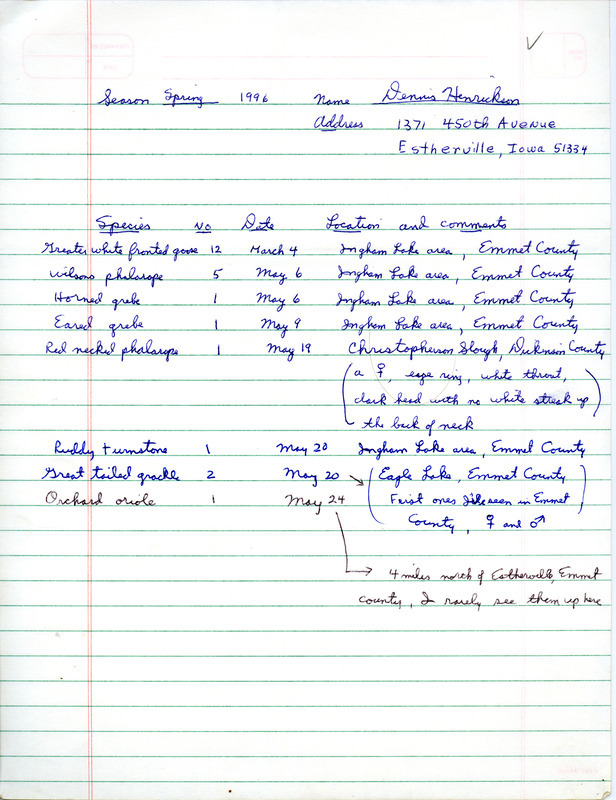 ✓
Season Spring 1996 Name Dennis Henrickson
Address 1371 450th Avenue
Estherville, Iowa 51334
Species No Date Location and comments
Greater white fronted goose 12 March 4 Ingham Lake area, Emmet County
Wilsons phalarope 5 May 6 Ingham Lake area, Emmet County
Horned grebe 1 May 6 Ingham Lake area, Emmet County
Eared grebe 1 May 9 Ingham Lake area, Emmet County
Red necked phalarope 1 May 19 Christopherson Slough, Dickinson County
(a ♀, eye ring, white throat,
dark head with no white streak up
the back of neck)
Ruddy turnstone 1 May 20 Ingham Lake area, Emmet County
Great tailed grackle 2 May 20 → (Eagle Lake, Emmet County
First ones seen in Emmet
County, ♀ and ♂)
Orchard oriole 1 May 24
→ 4 miles north of Estherville, Emmet
county, I rarely see them up here